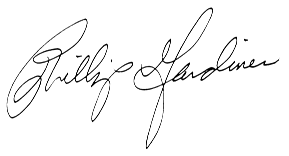 Phillip Gardiner